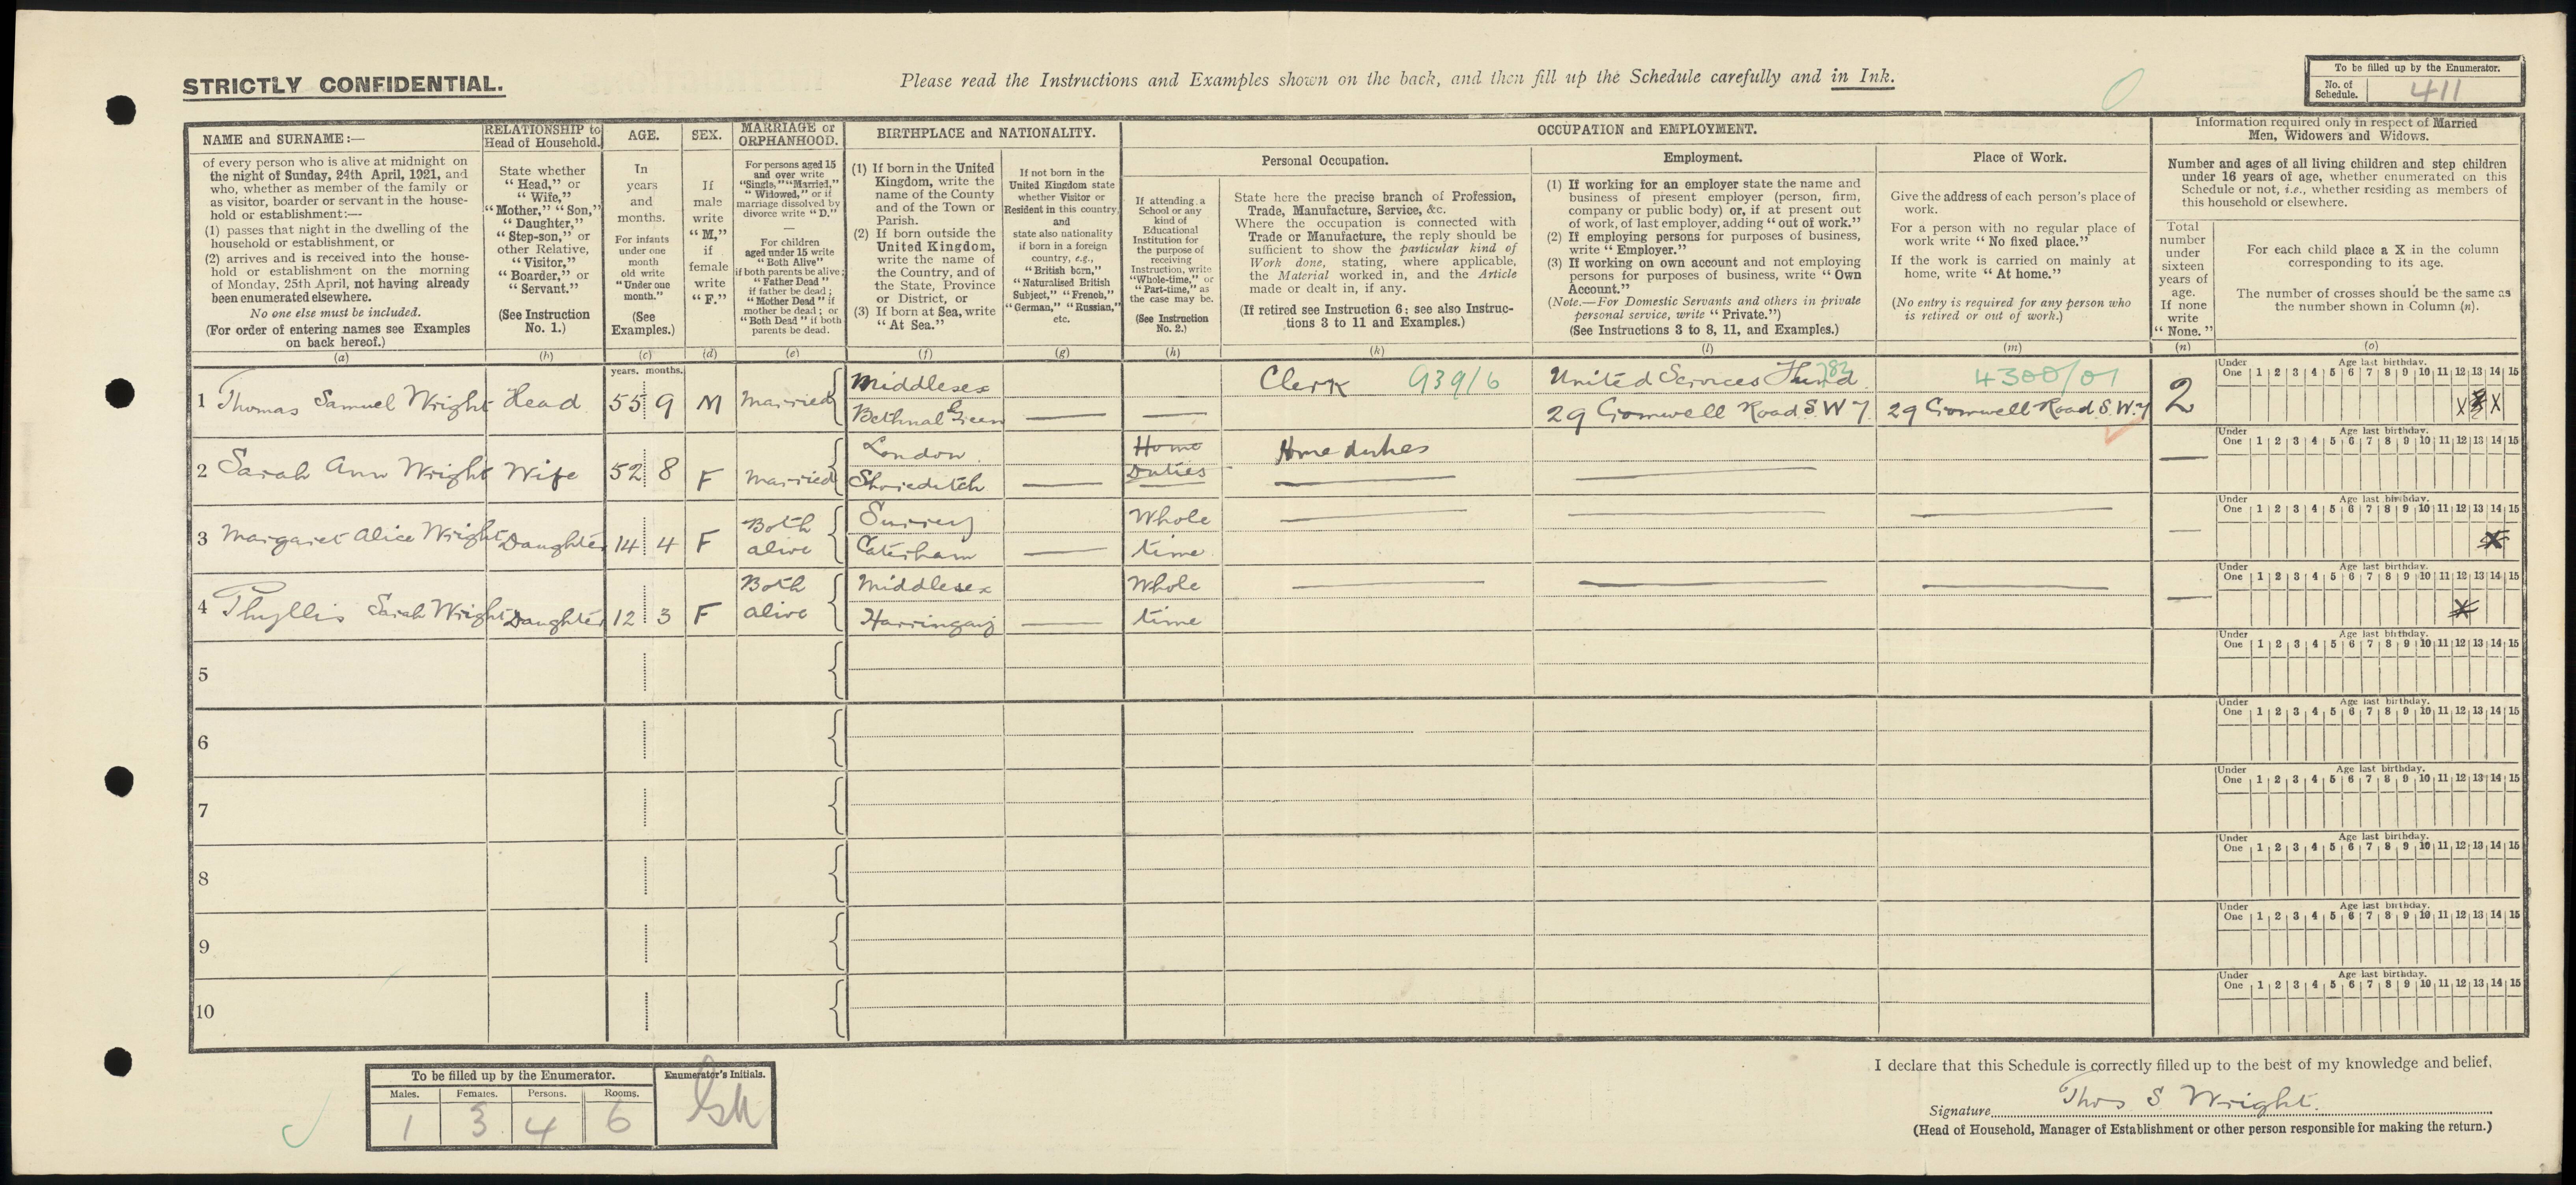 STRICTLY CONFIDENTIAL.
Please read the Instructions and Examples shown on the back, and then fill up the Schedule carefully and in Ink.
To be filled up by the Enumerator.
No. of Schedule. 411
NAME and SURNAME:—
of every person who is alive at midnight on
the night of Sunday, 24th April, 1921, and
who, whether as member of the family or
as visitor, boarder or servant in the house-
hold or establishment:—
(1) passes that night in the dwelling of the
household or establishment, or
(2) arrives and is received into the house-
hold or establishment on the morning
of Monday, 25th April, not having already
been enumerated elsewhere.
No one else must be included.
(For order of entering names see Examples
on back hereof.)
(a)
RELATIONSHIP to
Head of Household.
State whether
"Head," or
"Wife,"
"Mother," "Son,"
"Daughter,"
"Step-son," or
other Relative,
"Visitor,"
"Boarder," or
"Servant."
(See Instruction
No. 1.)
(b)
AGE.
In
years
and
months.
For infants
under one
month
old write
"Under one
month."
(See
Examples.)
(c)
SEX.
If
male
write
"M,"
if
female
write
"F."
(d)
MARRIAGE or
ORPHANHOOD.
For persons aged 15
and over write
"Single," "Married,"
"Widowed," or if
marriage dissolved by
divorce write "D."
For children
aged under 15 write
"Both Alive"
if both parents be alive;
"Father Dead"
if father be dead;
"Mother Dead" if
mother be dead; or
"Both Dead" if both
parents be dead.
(e)
BIRTHPLACE and NATIONALITY.
(1) If born in the United
Kingdom, write the
name of the County
and of the Town or
Parish.
(2) If born outside the
United Kingdom,
write the name of
the Country, and of
the State, Province
or District, or
(3) If born at Sea, write
"At Sea."
(f)
If not born in the
United Kingdom state
whether Visitor or
Resident in this country,
and
state also nationality
if born in a foreign
country, e.g.,
"British born,"
"Naturalised British
Subject," "French,"
"German," "Russian,"
etc.
(g)
OCCUPATION and EMPLOYMENT.
If attending a
School or any
kind of
Educational
Institution for
the purpose of
receiving
Instruction, write
"Whole-time," or
"Part-time," as
the case may be.
(See Instruction
No. 2.)
(h)
Personal Occupation.
State here the precise branch of Profession,
Trade, Manufacture, Service, &c.
Where the occupation is connected with
Trade or Manufacture, the reply should be
sufficient to show the particular kind of
Work done, stating, where applicable,
the Material worked in, and the Article
made or dealt in, if any.
(If retired see Instruction 6: see also Instruc-
tions 3 to 11 and Examples.)
(k)
Employment.
(1) If working for an employer state the name and
business of present employer (person, firm,
company or public body) or, if at present out
of work, of last employer, adding "out of work."
(2) If employing persons for purposes of business,
write "Employer."
(3) If working on own account and not employing
persons for purposes of business, write "Own
Account."
(Note.—For Domestic Servants and others in private
personal service, write "Private.")
(See Instructions 3 to 8, 11, and Examples.)
(l)
Place of Work.
Give the address of each person's place of
work.
For a person with no regular place of
work write "No fixed place."
If the work is carried on mainly at
home, write "At home."
(No entry is required for any person who
is retired or out of work.)
(m)
Information required only in respect of Married
Men, Widowers and Widows.
Number and ages of all living children and step children
under 16 years of age, whether enumerated on this
Schedule or not, i.e., whether residing as members of
this household or elsewhere.
Total
number
under
sixteen
years of
age.
If none
write
"None."
(n)
For each child place a X in the column
corresponding to its age.
The number of crosses should be the same as
the number shown in Column (n).
(o)
years. months.
Under One Age last birthday. 1 2 3 4 5 6 7 8 9 10 11 12 13 14 15
1 Thomas Samuel Wright Head 55 9 M Married Middlesex Bethnal Green Clerk 939/6 United Services Fund 782 29 Cromwell Road S.W 7. 4300/01 29 Cromwell Road S.W.7 2 X X
Under One Age last birthday. 1 2 3 4 5 6 7 8 9 10 11 12 13 14 15
2 Sarah Ann Wright Wife 52 8 F Married London Shoreditch Home Duties Home duties
Under One Age last birthday. 1 2 3 4 5 6 7 8 9 10 11 12 13 14 15
3 Margaret Alice Wright Daughter 14 4 F Both alive Surrey Caterham Whole time X
Under One Age last birthday. 1 2 3 4 5 6 7 8 9 10 11 12 13 14 15
4 Phyllis Sarah Wright Daughter 12 3 F Both alive Middlesex Harringay Whole time X
Under One Age last birthday. 1 2 3 4 5 6 7 8 9 10 11 12 13 14 15
5
Under One Age last birthday. 1 2 3 4 5 6 7 8 9 10 11 12 13 14 15
6
Under One Age last birthday. 1 2 3 4 5 6 7 8 9 10 11 12 13 14 15
7
Under One Age last birthday. 1 2 3 4 5 6 7 8 9 10 11 12 13 14 15
8
Under One Age last birthday. 1 2 3 4 5 6 7 8 9 10 11 12 13 14 15
9
Under One Age last birthday. 1 2 3 4 5 6 7 8 9 10 11 12 13 14 15
10
To be filled up by the Enumerator.
Males. Females. Persons. Rooms.
1 3 4 6
Enumerator's Initials.
I declare that this Schedule is correctly filled up to the best of my knowledge and belief.
Signature Thos S. Wright.
(Head of Household, Manager of Establishment or other person responsible for making the return.)